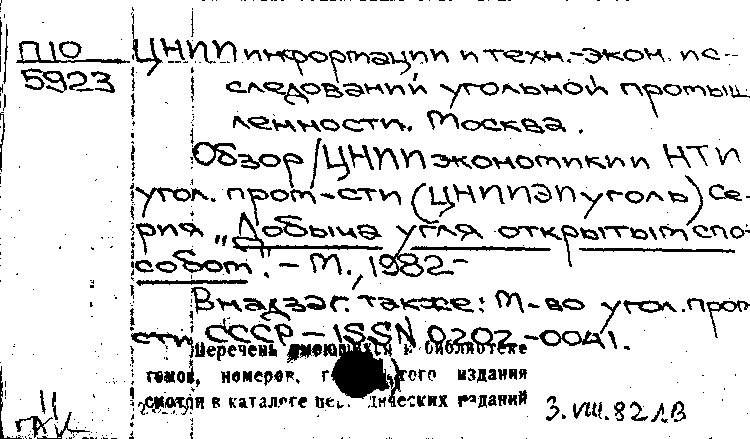 П10
5923
ЦНИИ информации и техн.-экон. ис-
следований угольной промыш
ленности. Москва.
Обзор/ЦНИИ экономики и НТИ
угол. пром-сти (ЦНИИЭИуголь) Се-
рия „Добыча угля открытым спо-
собом". - М., 1982-
В надзаг. также: М-во угол. пром
сти СССР - ISSN 0202-0041.
Перечень имеющихся в библиотеке
томов, номеров, издания
смотри в каталоге периодических изданий
3.VIII.82 Л.В